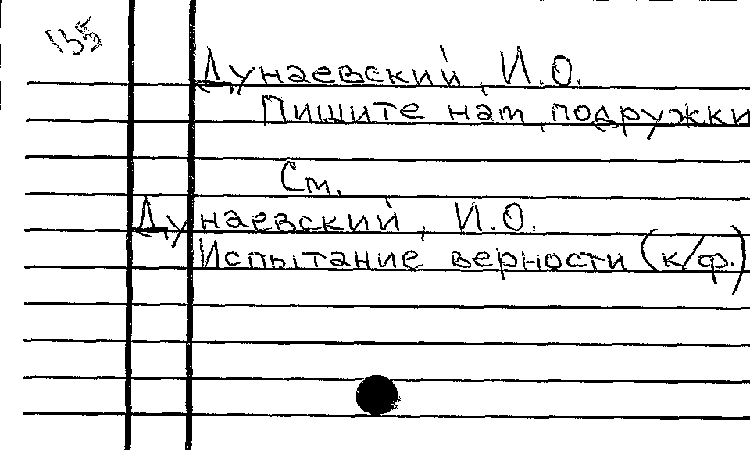 135
Дунаевский, И.О.
Пишите нам, подружки
См.
Дунаевский, И.О.
Испытание верности (к/ф.)